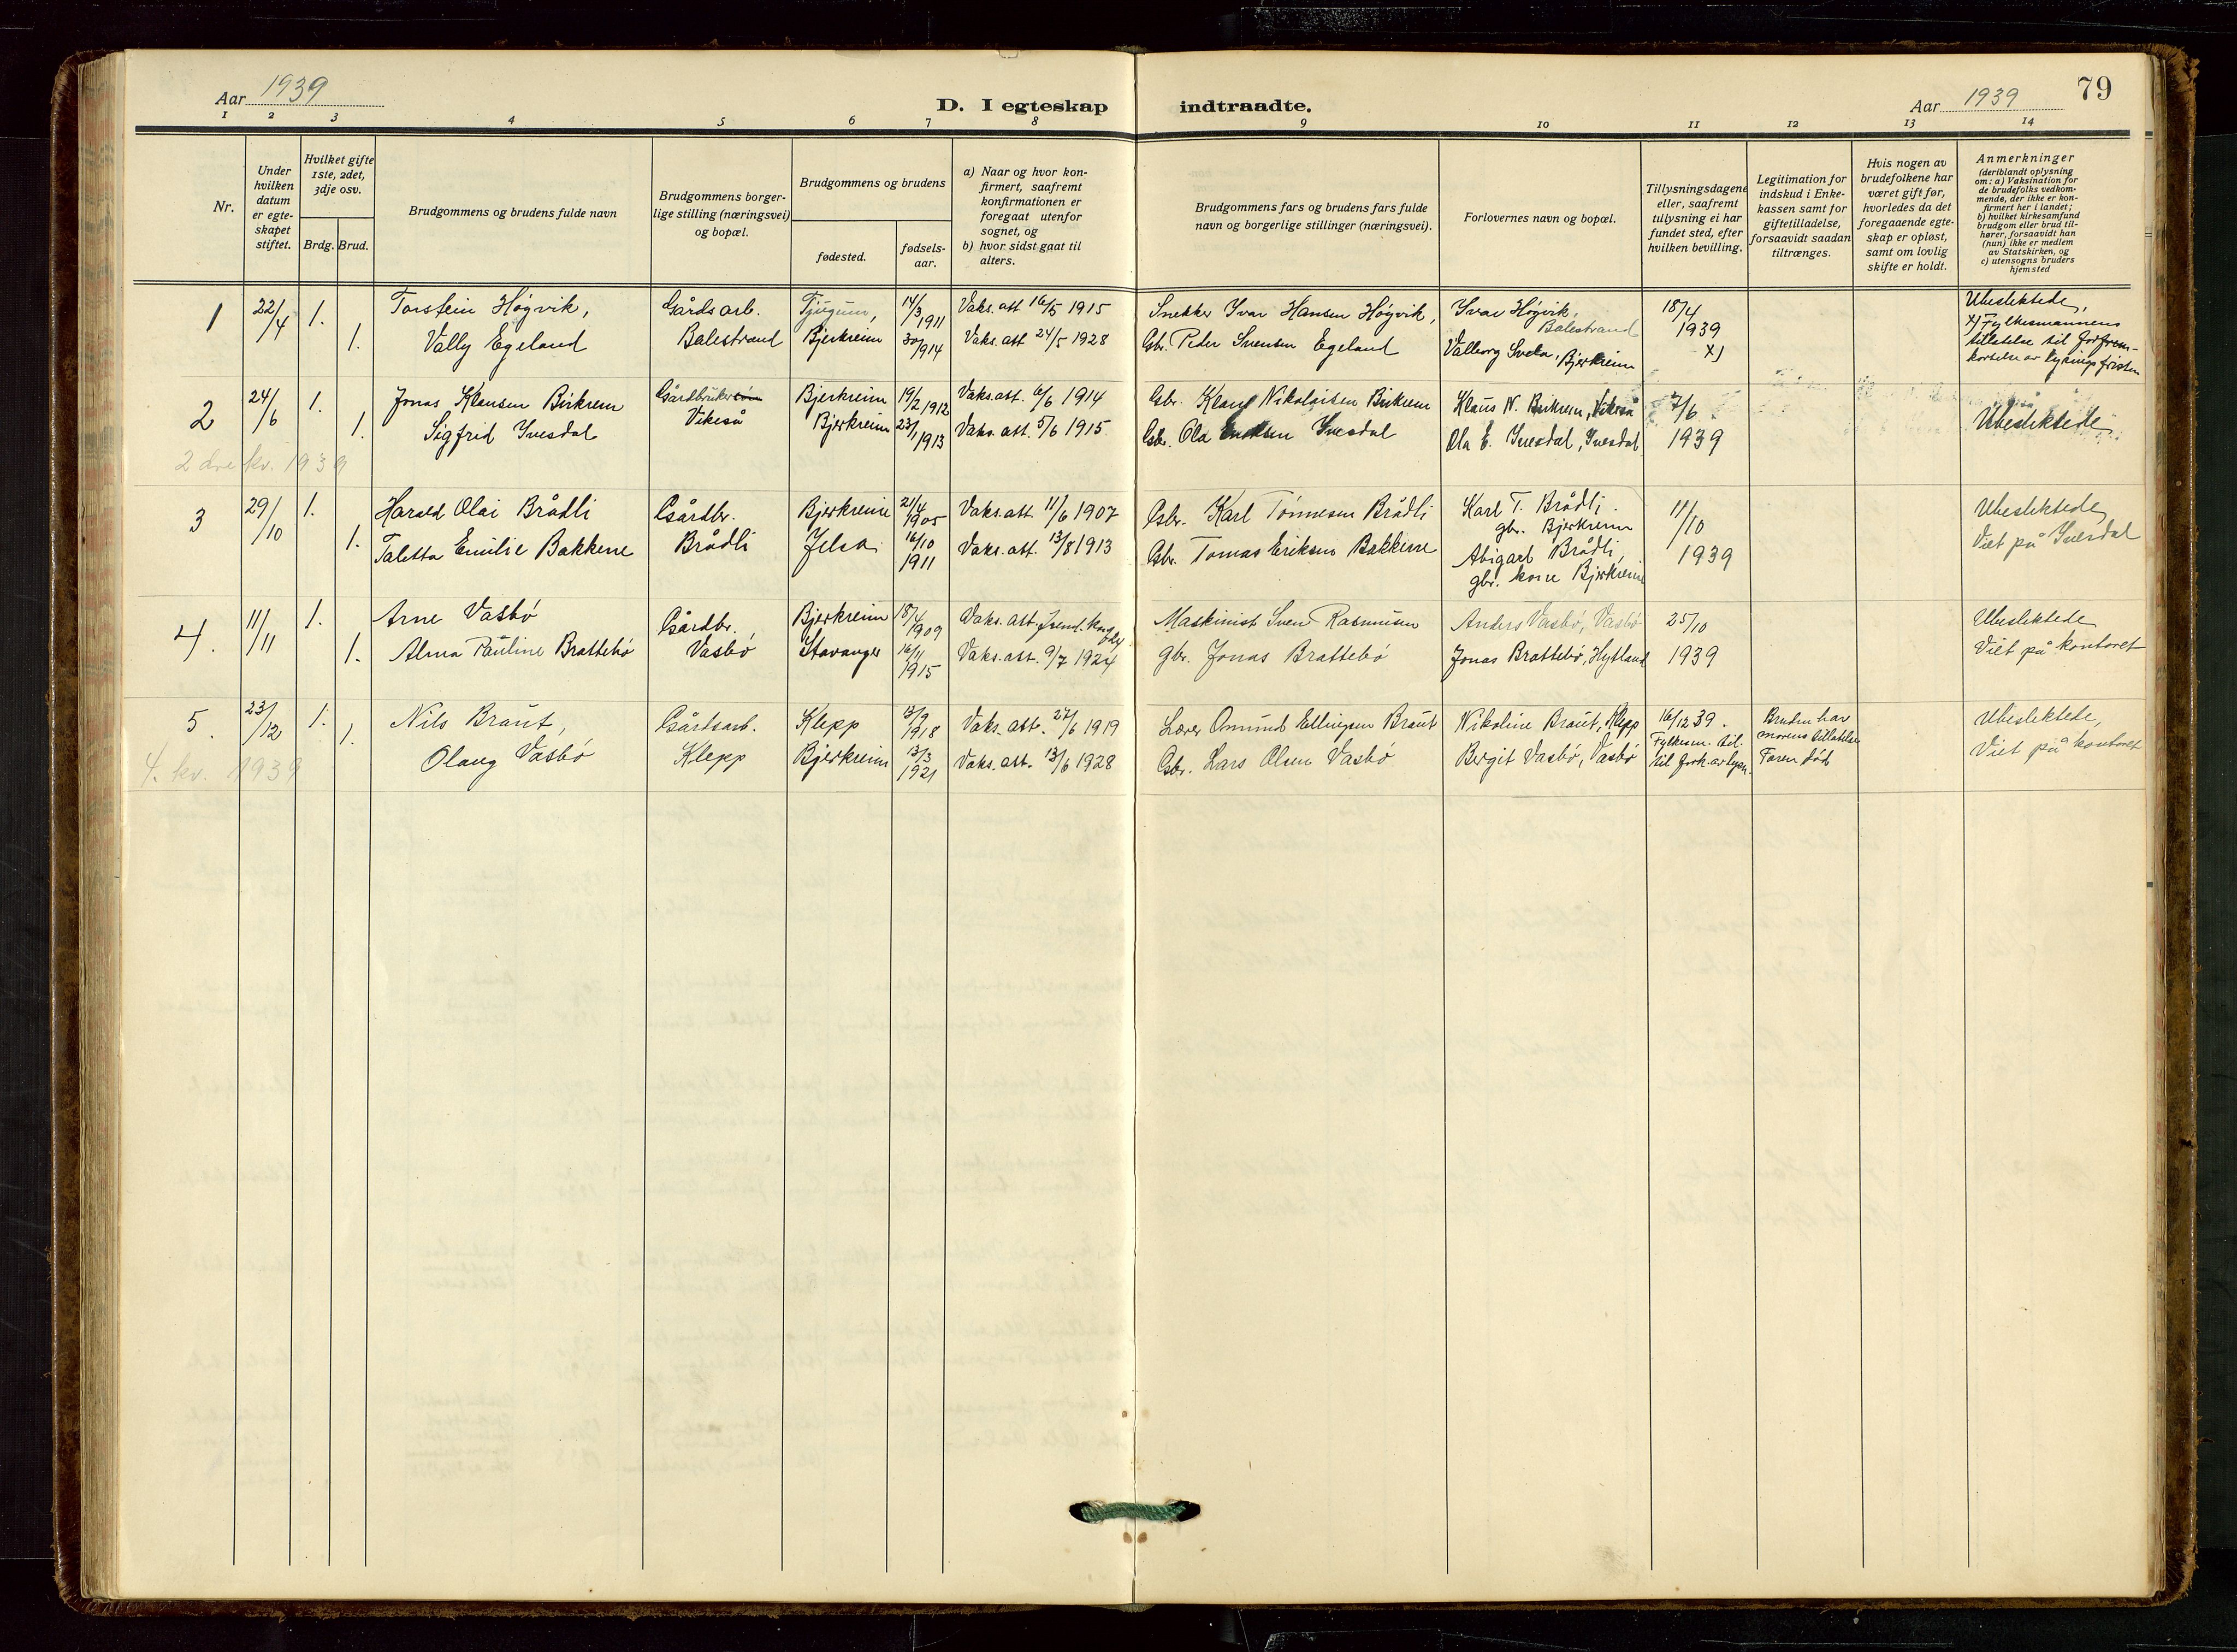 Aar 1939
D. I egteskap indtraadte.
Aar 1939
79
1 2 3 4 5 6 7 8 9 10 11 12 13 14
Nr.
Under
hvilken
datum
er egte-
skapet
stiftet.
Hvilket gifte
1ste, 2det,
3dje osv.
Brdg. Brud.
Brudgommens og brudens fulde navn
Brudgommens borger-
lige stilling (næringsvei)
og bopæl.
Brudgommens og brudens
fødested.
fødsels-
aar.
a) Naar og hvor kon-
firmert, saafremt
konfirmationen er
foregaat utenfor
sognet, og
b) hvor sidst gaat til
alters.
Brudgommens fars og brudens fars fulde
navn og borgerlige stillinger (næringsvei).
Forlovernes navn og bopæl.
Tillysningsdagene
eller, saafremt
tillysning ei har
fundet sted, efter
hvilken bevilling.
Legitimation for
indskud i Enke-
kassen samt for
giftetilladelse,
forsaavidt saadan
tiltrænges.
Hvis nogen av
brudefolkene har
været gift før,
hvorledes da det
foregaaende egte-
skap er opløst,
samt om lovlig
skifte er holdt.
Anmerkninger
(deriblandt oplysning
om: a) Vaksination for
de brudefolks vedkom-
mende, der ikke er kon-
firmert her i landet;
b) hvilket kirkesamfund
brudgom eller brud til-
hører, forsaavidt han
(hun) ikke er medlem
av Statskirken, og
c) utensogns bruders
hjemsted
1 22/4 1. Torstein Høgvik, Gårdsarb. Tjugum, 14/3 1911 Vaks. att 16/5 1915 Snekker Ivar Hansen Høgvik, Ivar Høgvik, Balestrand 18/4 1939 x) Ubeslektede,
1. Vally Egeland Balestrand Bjerkreim 30/1 1914 Vaks. att 24/5 1928 Gbr. Peder Svensen Egeland Valborg Svela, Bjerkreim
x) Fylkesmannens
tillatelse til
kortelse av lysningsfristen
2 24/6 1. Jonas Klausen Birkrem Gårdbruker Bjerkreim 19/2 1912 Vaks. att. 6/6 1914 Gbr. Klaus Nikolaisen Birkrem Klaus N. Birkrem, Vikeså 7/6
1. Sigfrid Ivesdal Vikeså Bjerkreim 23/1 1913 Vaks. att. 5/6 1915 Gbr. Ola Eriksen Ivesdal Ola E. Ivesdal, Ivesdal 1939 Ubeslektede
2dre kv. 1939
3 29/10 1. Harald Olai Brådli Gårdbr. Bjerkreim 21/4 1905 Vaks. att. 11/6 1907 Gbr. Karl Tønnesen Brådli Karl T. Brådli gbr. Bjerkreim 11/10 Ubeslektede
1. Taletta Emilie Bakkene Brådli Jelsa 16/10 1911 Vaks. att. 13/8 1913 Gbr. Tomas Eriksen Bakkene Abigael Brådli, gbr. kone Bjerkreim 1939 Viet på Ivesdal
4. 11/11 1. Arne Vasbø Gårdbr. Bjerkreim 18/4 1909 Vaks. att. Maskinist Sven Rasmusen Anders Vasbø, Vasbø 25/10 Ubeslektede
1. Alma Pauline Brattebø Vasbø Stavanger 16/11 1915 Vaks. att. 9/7 1924 gbr. Jonas Brattebø Jonas Brattebø, Hytland 1939 Viet på kontoret
5. 23/12 1. Nils Braut, Gårdsarb. Klepp 13/9 1918 Vaks. att. 27/6 1919 Lærer Omund Ellingsen Braut Nikoline Braut, Klepp 16/12 39. Bruden har Ubeslektede,
1. Olaug Vasbø Klepp Bjerkreim 13/3 1921 Vaks. att. 13/6 1928 Gbr. Lars Olsen Vasbø Bergit Vasbø, Vasbø Fylkesm. til. til fork. av lysn. morens tillatelse Faren død Viet på kontoret
4. kv. 1939